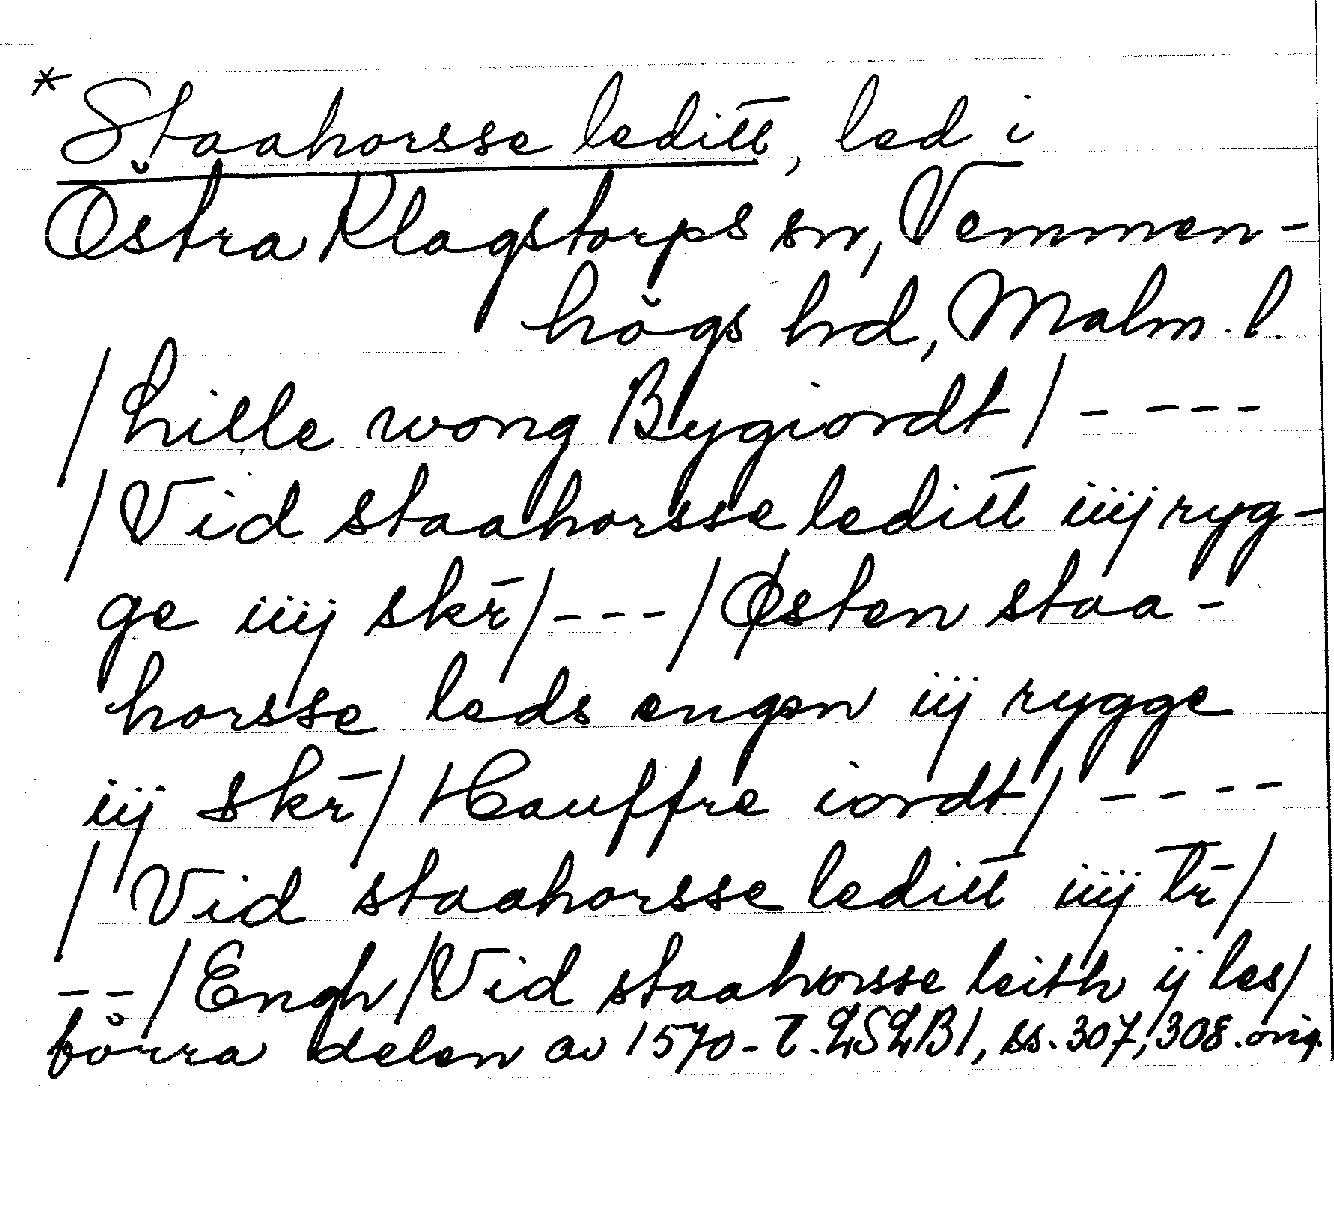 * Staahorsse leditt, led i
Östra Klagstorps sn, Vemmen-
högs hd, Malm. l.
/ Lille wong Bygiordt / - - - -
/ Vid staahorsse leditt iiij ryg-
ge iiij skr̄ / - - - / Østen staa-
horsse leds engen iij rygge
iij skr̄ / Hauffre iordt / - - - -
/ Vid staahorsse leditt iiij tr̄ /
- - / Engh / Vid staahorsse leith ij les /
förra delen av 1570- t. LSLB1, ss. 307, 308. orig.